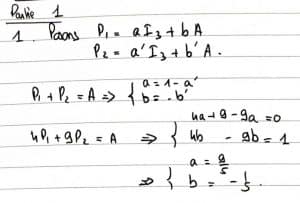 Partie 1
1. Posons P₁ = aI₃ + bA
P₂ = a'I₃ + b'A.
P₁ + P₂ = A ⇒ { a = 1 - a'
b = - b'
4P₁ + 9P₂ = A ⇒ { 4a + 9 - 9a = 0
4b - 9b = 1
⇒ { a = 9/5
b = - 1/5.